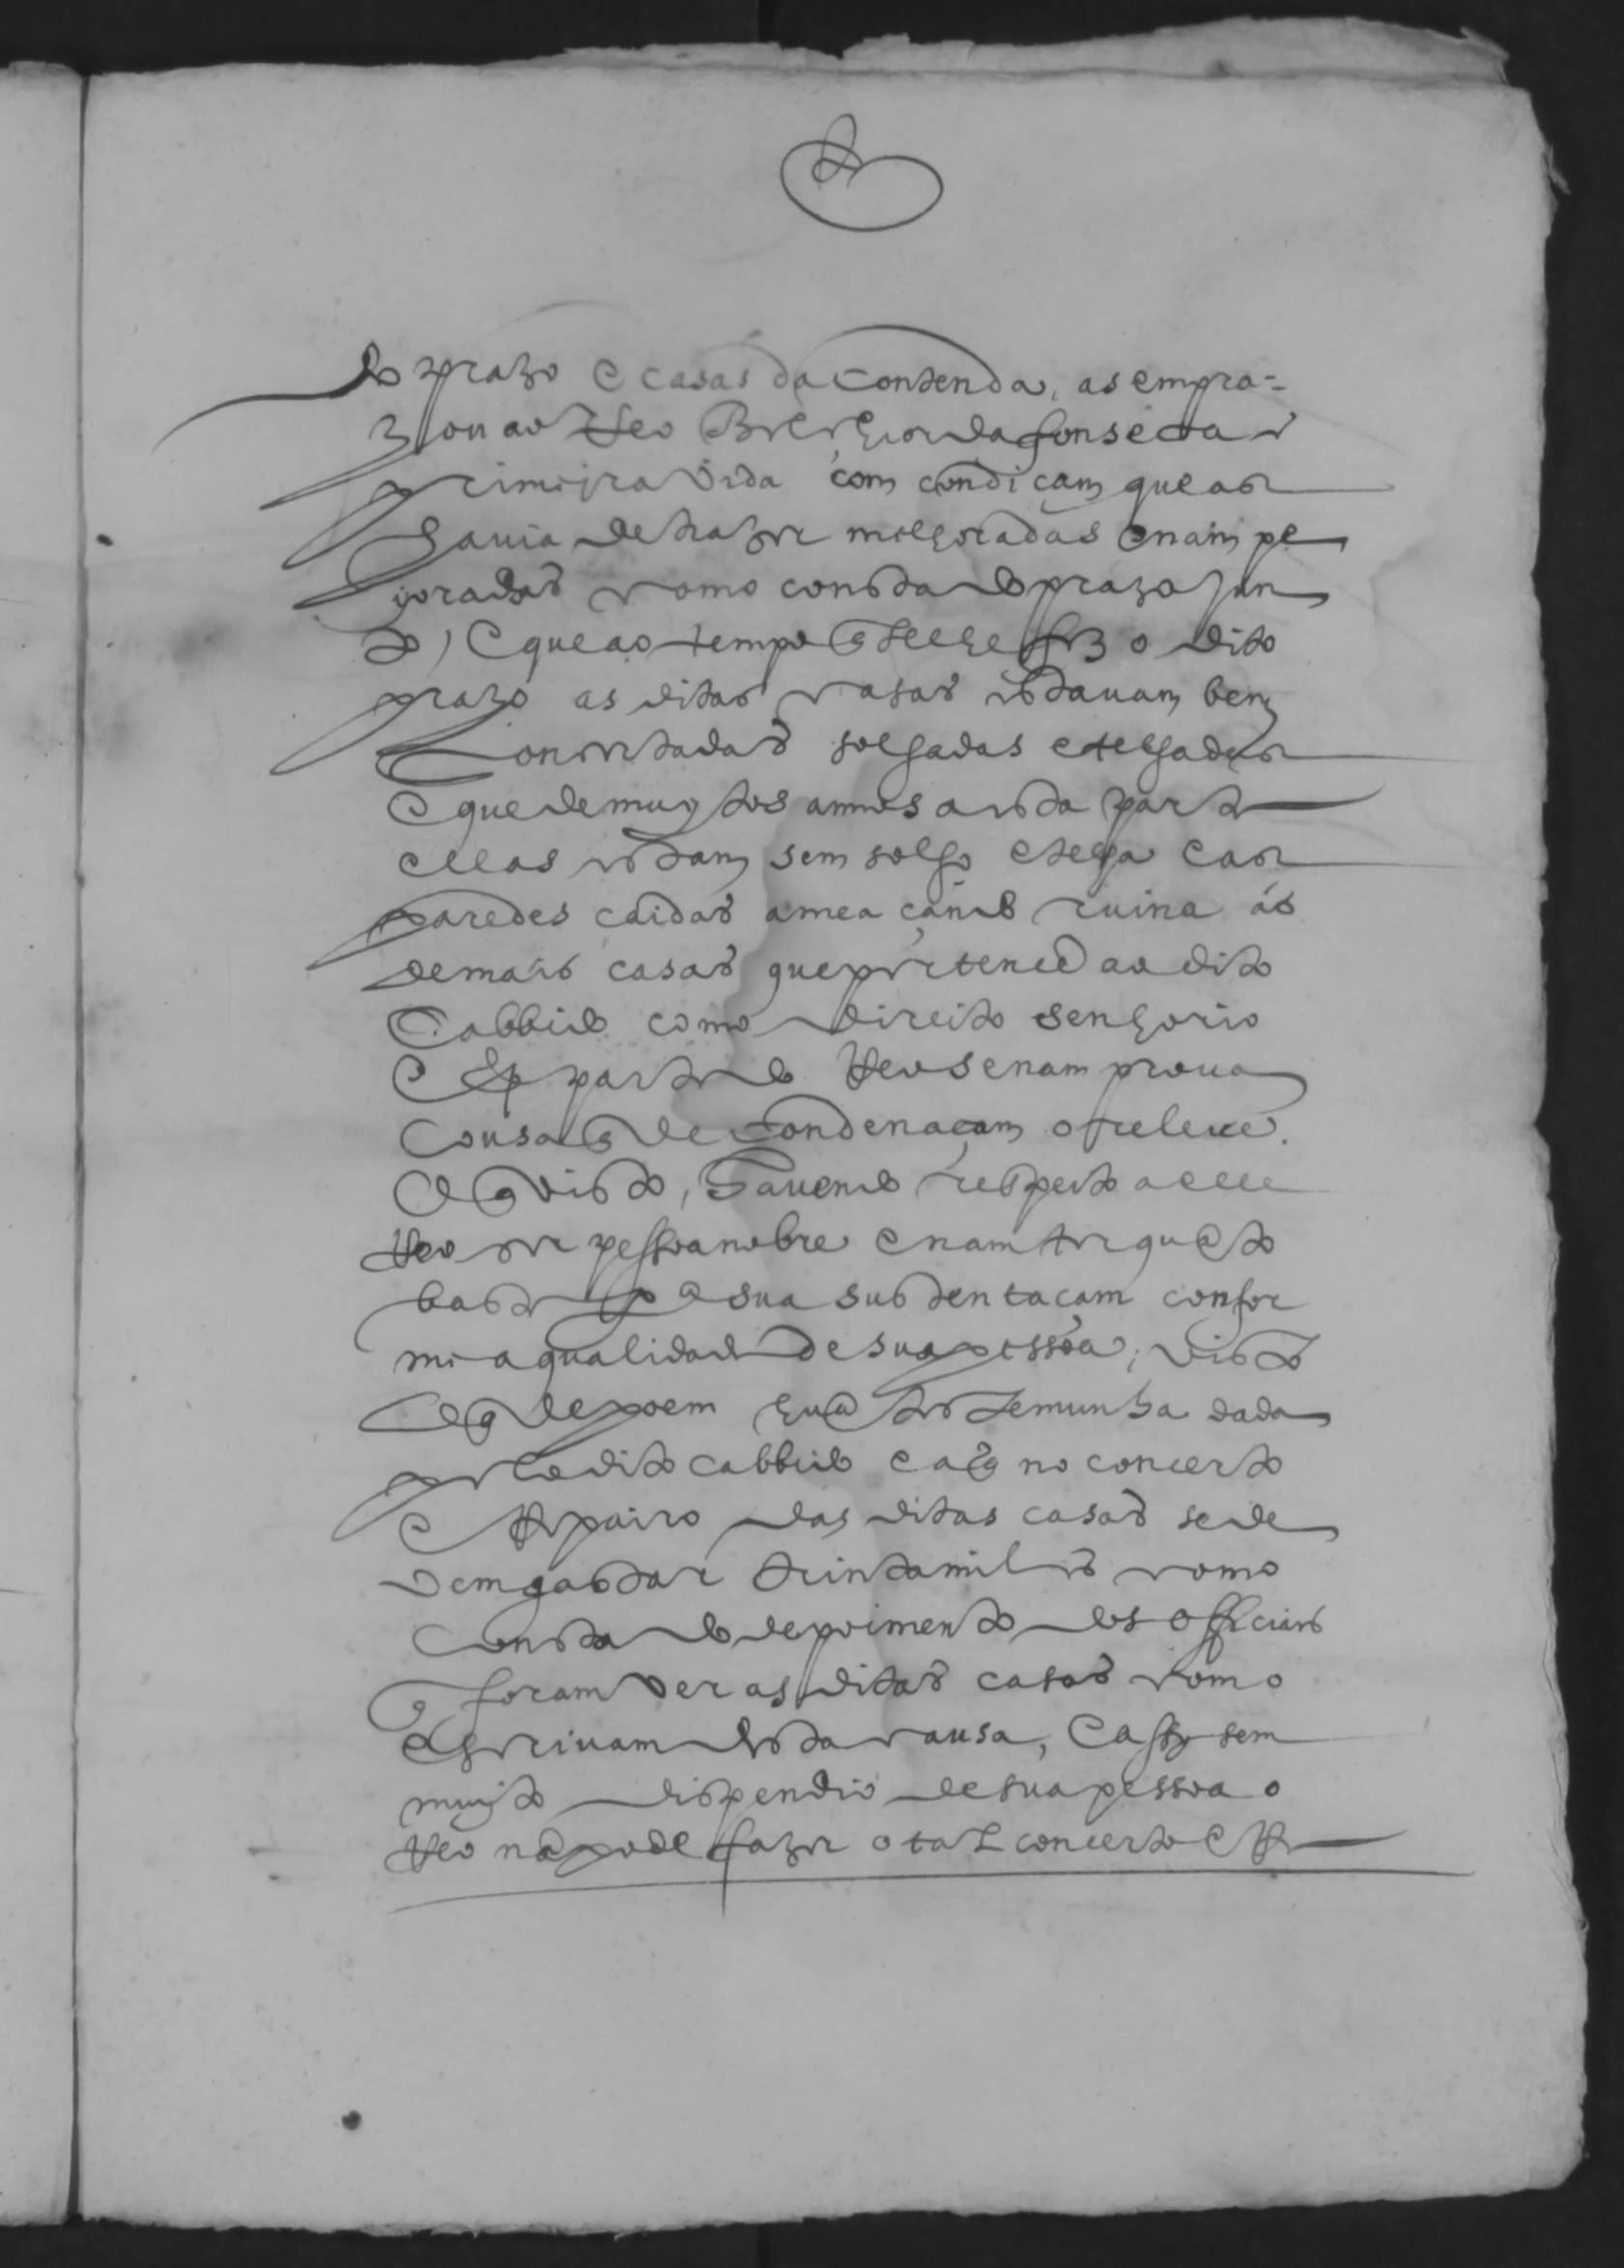 do prazo e casas da contenda, as empra=
zou ao Reo Belchior da fonseca e
primejra vida com condiçam que as
hauia de trazer milhoradas e nam pe
joradas como consta do prazo jun
to, E que ao tempo q se lhe fez o dito
prazo as ditas casas estauam bem
Concertadas solhadas e telhadas
E que de muytos annos a esta parte
ellas estam sem solho e telha e as
paredes caidas ameaçando ruina ás
demais casas que pertencē ao dito
Cabbido como direito senhorio
E por parte do Reo se nam proua
Cousa q de condenaçam o releue.
O q visto, hauendo respeito a elle
Reo ser pessoa nobre e nam ter quāto
baste pa sua sustentaçam confor
me a qualidade de sua pessoa, visto
o q depoem hūa testemunha dada
pelo dito cabbido e a q no concerto
E Repairo das ditas casas se de
vem gastar trinta mil rs como
Consta do depoimento dos officiais
q foram ver as ditas casas como
escriuam desta causa, E assy sem
muyto dispendio de sua pessoa o
Reo nã pode fazer o tal concerto e Re